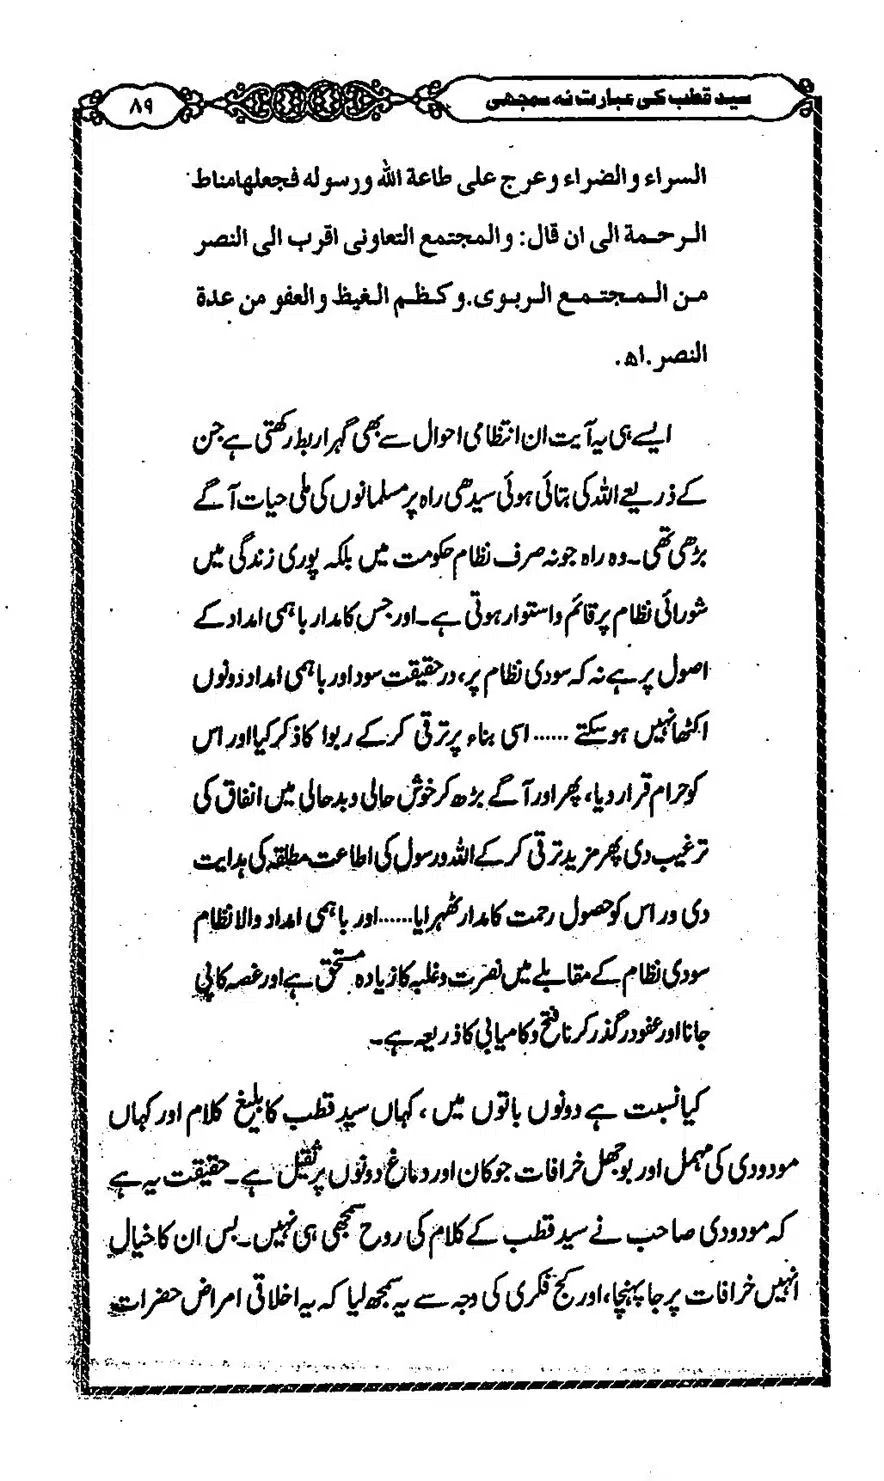 سید قطب کی عبارت نہ سمجھی
۸۹
السراء والضراء وعرج على طاعة الله ورسوله فجعلها مناط
الرحمة الى ان قال: والمجتمع التعاونى اقرب الى النصر
من المجتمع الربوى. وكظم الغيظ والعفو من عدة
النصر. اھ.
ایسے ہی یہ آیت ان انتظامی احوال سے بھی گہرا ربط رکھتی ہے جن
کے ذریعے اللہ کی بتائی ہوئی سیدھی راہ پر مسلمانوں کی ملی حیات آگے
بڑھی تھی۔ وہ راہ جو نہ صرف نظام حکومت میں بلکہ پوری زندگی میں
شورائی نظام پر قائم و استوار ہوتی ہے۔ اور جس کا مدار باہمی امداد کے
اصول پر ہے نہ کہ سودی نظام پر، درحقیقت سود اور باہمی امداد دونوں
اکٹھا نہیں ہو سکتے ...... اسی بناء پر ترقی کر کے ربوا کا ذکر کیا اور اس
کو حرام قرار دیا، پھر اور آگے بڑھ کر خوش حالی و بدحالی میں انفاق کی
ترغیب دی پھر مزید ترقی کر کے اللہ ورسول کی اطاعت مطلقہ کی ہدایت
دی ور اس کو حصول رحمت کا مدار ٹھہرایا...... اور باہمی امداد والا نظام
سودی نظام کے مقابلے میں نصرت و غلبہ کا زیادہ مستحق ہے اور غصہ کا پی
جانا اور عفو درگذر کرنا فتح و کامیابی کا ذریعہ ہے۔
کیا نسبت ہے دونوں باتوں میں، کہاں سید قطب کا بلیغ کلام اور کہاں
مودودی کی مہمل اور بوجھل خرافات جو کان اور دماغ دونوں پر ثقیل ہے۔ حقیقت یہ ہے
کہ مودودی صاحب نے سید قطب کے کلام کی روح سمجھی ہی نہیں۔ بس ان کا خیال
انہیں خرافات پر جا پہنچا، اور کج فکری کی وجہ سے یہ سمجھ لیا کہ یہ اخلاقی امراض حضرات